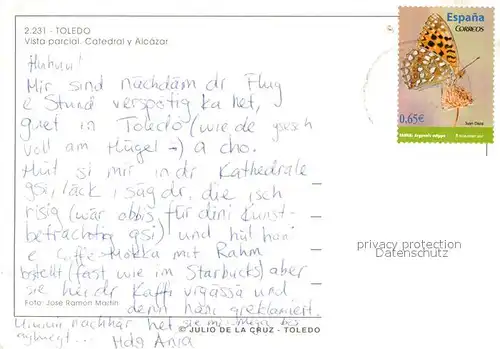 2.231 - TOLEDO
Vista parcial. Catedral y Alcázar
España
CORREOS
0,65€
Huhuu!
Mir sind nachdäm dr Flug
e Stund verspötig ka het,
guet in Toledo (wie de gsesch
voll am Hügel :-) a cho.
Hüt si mir in dr Kathedrale
gsi, läck i säg dr, die isch
risig (wär öbbis für dini Kunst-
betrachtig gsi) und hüt han i
e Caffe-Mokka mit Rahm
bstellt (fast wie im Starbucks) aber
sie hei dr Kaffi vrgässä und
denn hani greklamiert.
nachhär het sie mi mega bös
Hdg Anja
privacy protection
Datenschutz
Foto: Jose Ramon Martin
© JULIO DE LA CRUZ - TOLEDO